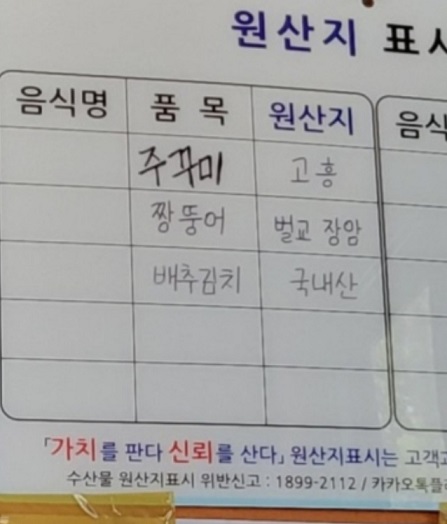 원산지 표시
음식명 품 목 원산지 음식
주꾸미 고흥
짱뚱어 벌교 장암
배추김치 국내산
「가치를 판다 신뢰를 산다」 원산지표시는 고객과
수산물 원산지표시 위반신고 : 1899-2112 / 카카오톡플러